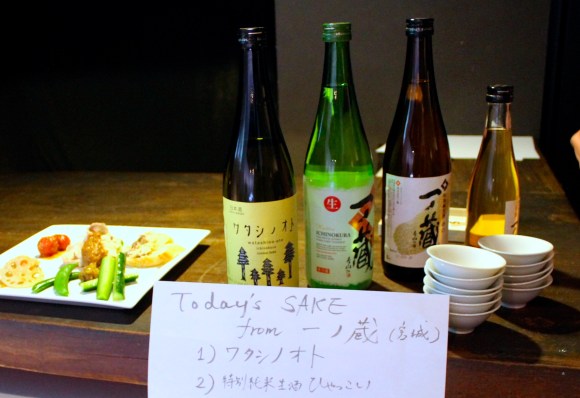 ワタシノオト
生
一ノ蔵
ICHINOKURA
一ノ蔵
Today's SAKE
from 一ノ蔵 (宮城)
1) ワタシノオト
2) 特別純米生酒 ひゃっこい